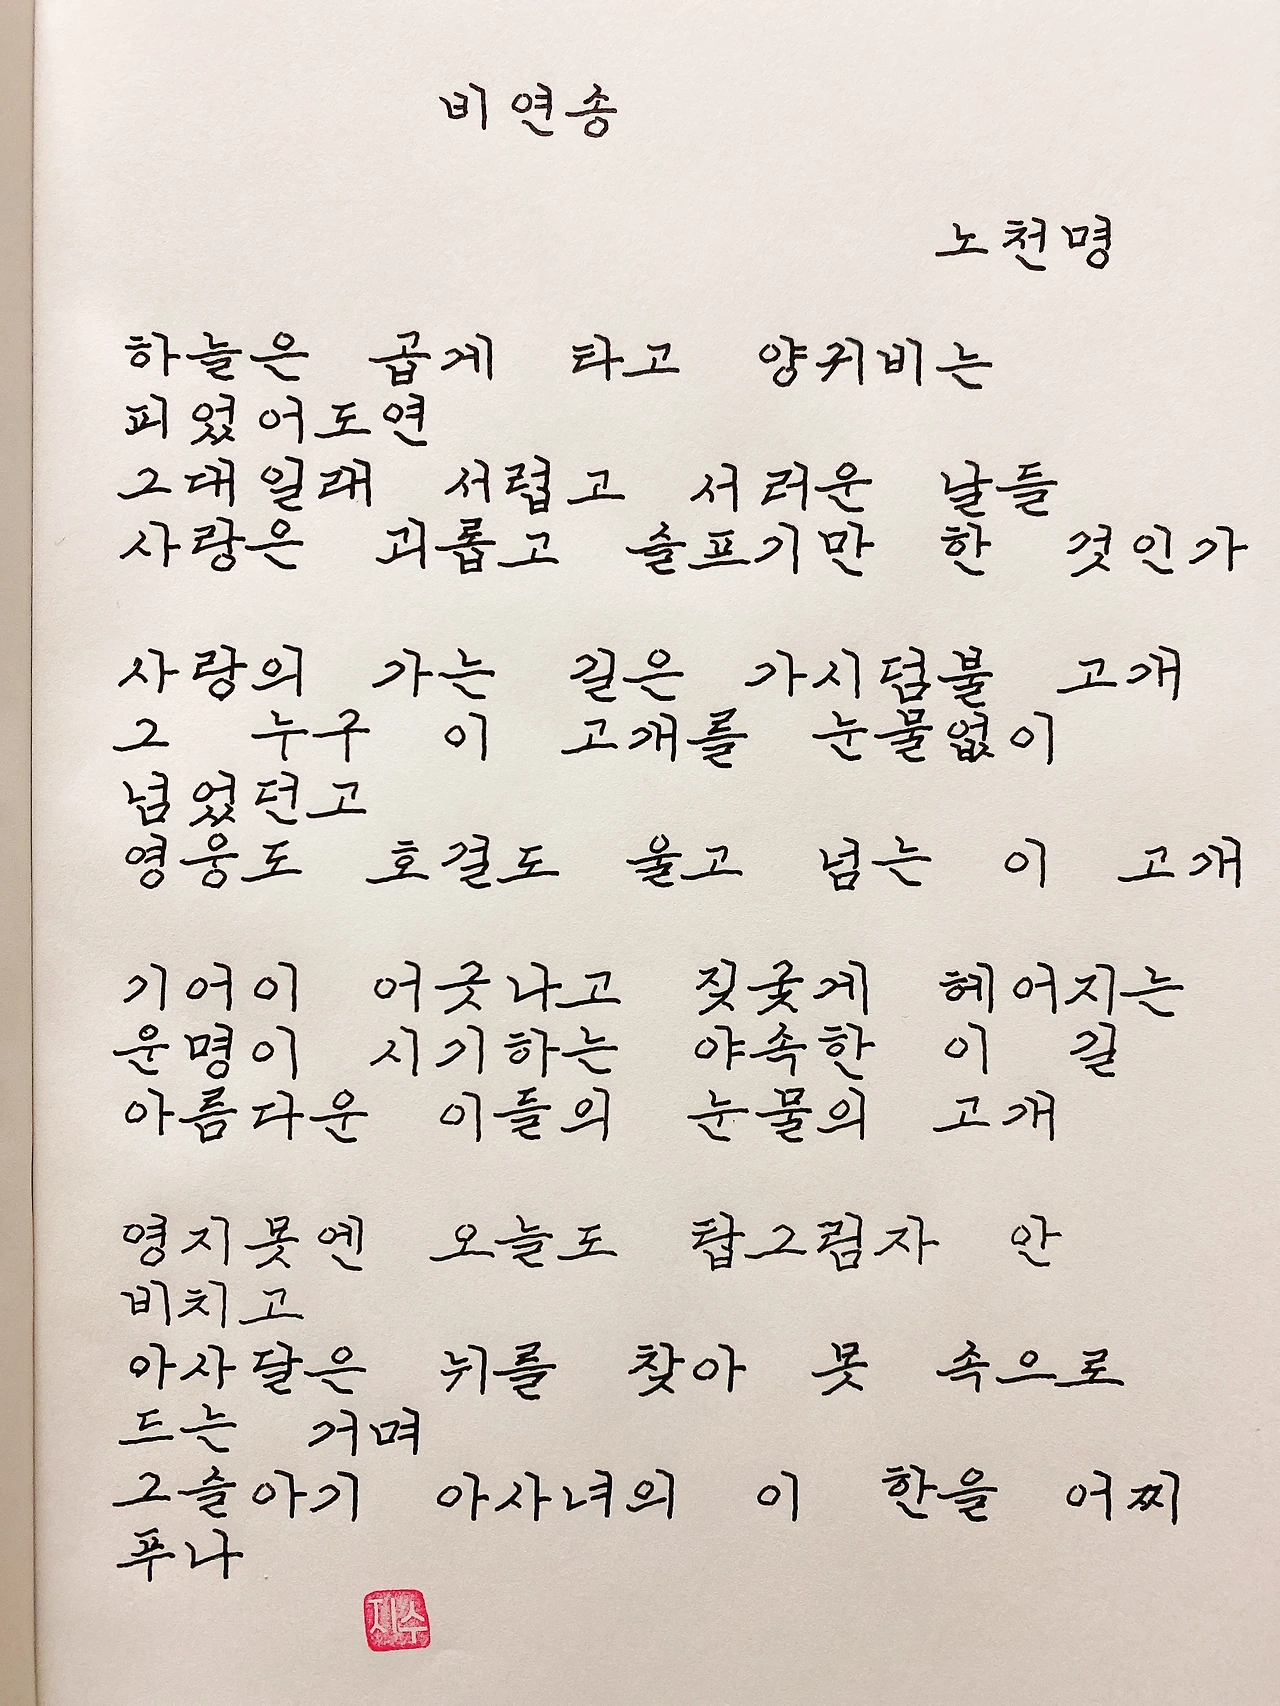 비연송
노천명
하늘은 곱게 타고 양귀비는
피었어도연
그대일래 서럽고 서러운 날들
사랑은 괴롭고 슬프기만 한 것인가
사랑의 가는 길은 가시덤불 고개
그 누구 이 고개를 눈물없이
넘었던고
영웅도 호걸도 울고 넘는 이 고개
기어이 어긋나고 짖궂게 헤어지는
운명이 시기하는 야속한 이 길
아름다운 이들의 눈물의 고개
영지못엔 오늘도 탑그림자 안
비치고
아사달은 뉘를 찾아 못 속으로
드는 거며
그슬아기 아사녀의 이 한을 어찌
푸나
지수